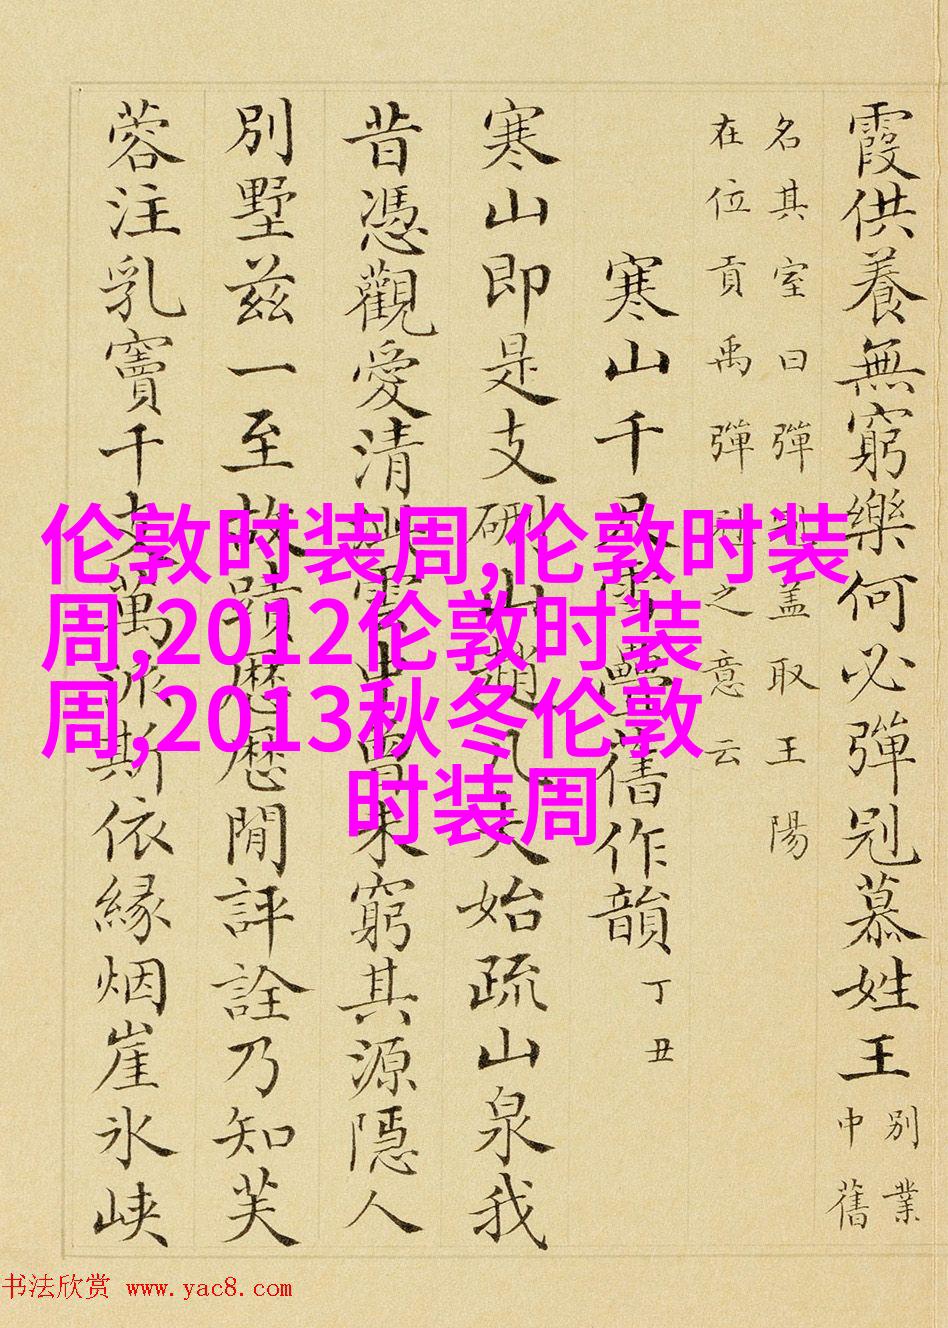 霞供養無窮樂何必彈冠慕姓王
別業
中舊
名其室曰彈冠蓋取王陽
在位貢禹彈冠之意云
寒山千尺雪疊舊作韻
丁丑
寒山即是支硎山趙凡夫始疏山泉我
昔憑觀愛清 雪 曾未窮其源隱人
別墅茲一至故蹟歷歷閒評詮乃知芙
蓉注乳竇千支萬派斯依緣烟崖氷峡
伦敦时装周,伦敦时装
周,2012伦敦时装
周,2013秋冬伦敦
时装周
书法欣赏 www.yac8.com